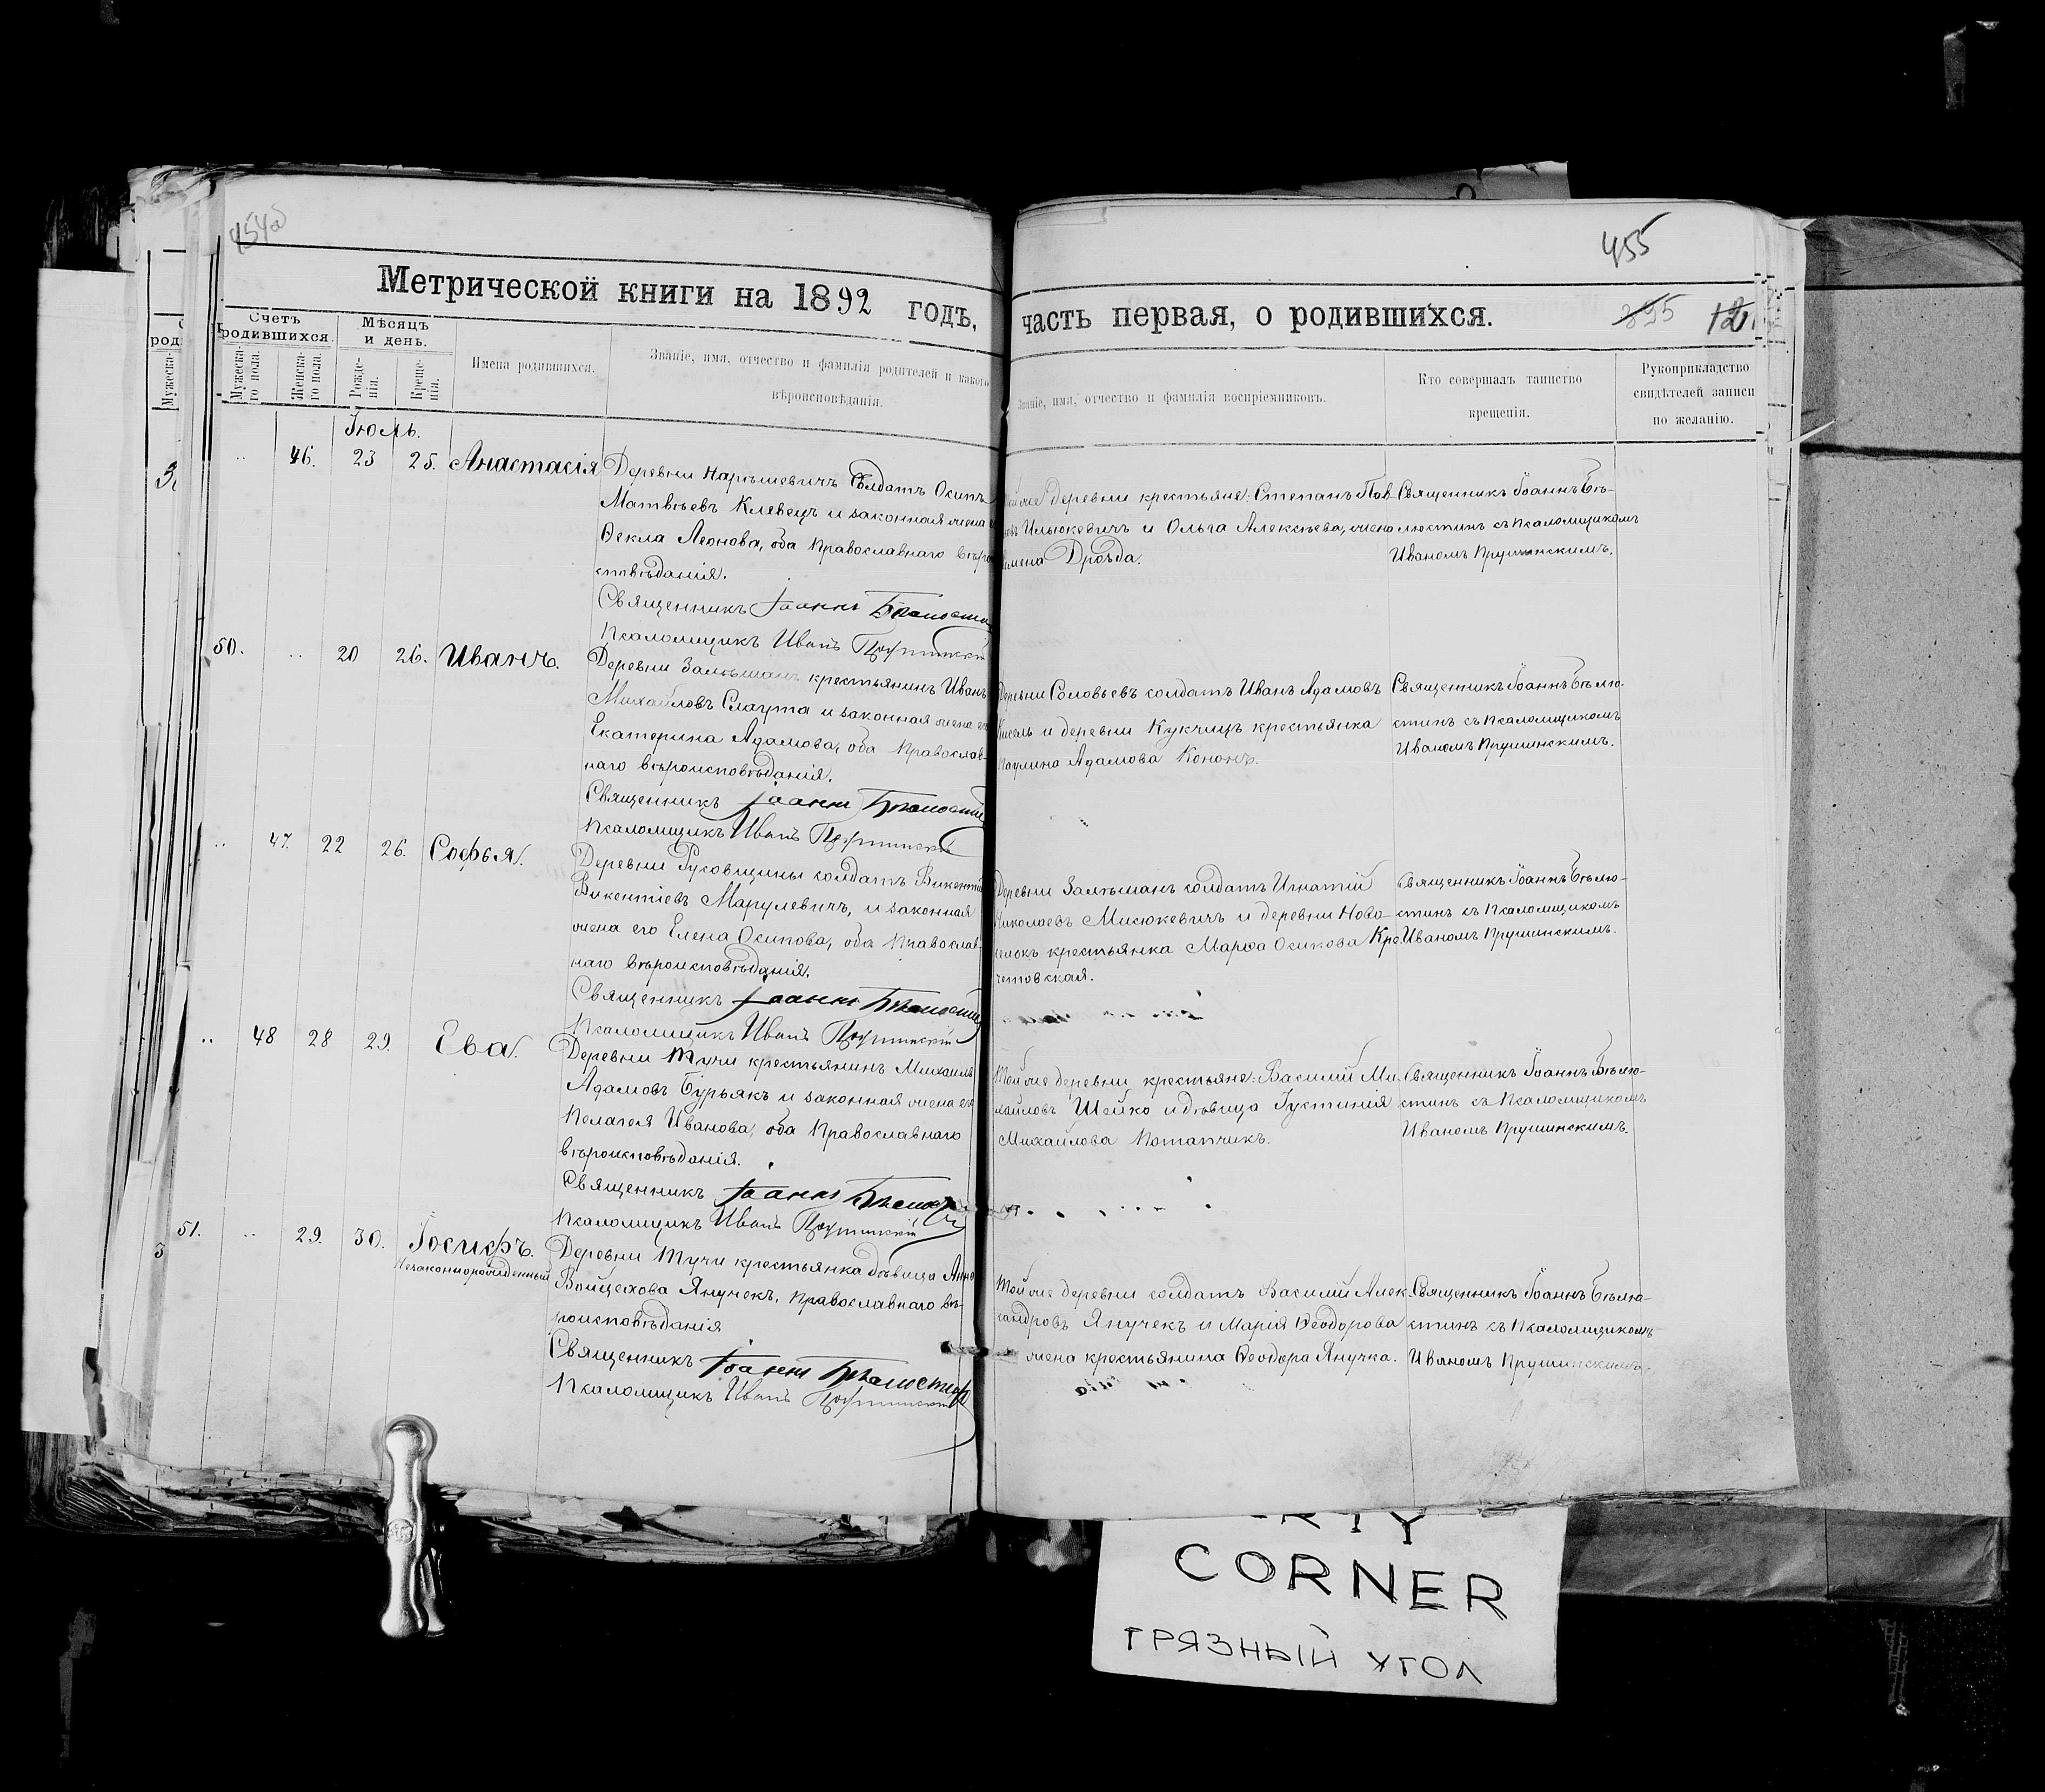 454об
455
Метрической книги на 1892 годъ,
часть первая, о родившихся.
395
Счетъ родившихся.
Мѣсяцъ и день.
Мужеска-го пола.
Женска-го пола.
Рожде-нія.
Креще-нія.
Имена родившихся.
Званіе, имя, отчество и фамилія родителей и какого
вѣроисповѣданія.
Званіе, имя, отчество и фамилія воспріемниковъ.
Кто совершалъ таинство
крещенія.
Рукоприкладство
свидѣтелей записи
по желанію.
Іюль.
46. 23 25. Анастасія
Деревни солдатъ Осипъ
Матвѣевъ Клевецъ и законная жена
Ѳекла Леонова, оба Православнаго
сповѣданія.
Священникъ Іоаннъ
Псаломщикъ Иванъ
Той же деревни крестьяне: Степанъ
Ильюкевичъ и Ольга Алексѣева, жена
Дрозда.
Священникъ Іоаннъ Бѣ-
люстинъ съ Псаломщикомъ
Иваномъ Прушинскимъ.
50. 20 26. Иванъ.
Деревни Залѣшанъ крестьянинъ Иванъ
Михайловъ Слаута и законная жена
Екатерина Адамова, оба Православ-
наго вѣроисповѣданія.
Священникъ Іоаннъ
Псаломщикъ Иванъ
Деревни Соловьевъ солдатъ Иванъ Адамовъ
Кисель и деревни Кукчицъ крестьянка
Паулина Адамова Кононъ.
Священникъ Іоаннъ Бѣлю-
стинъ съ Псаломщикомъ
Иваномъ Прушинскимъ.
47. 22 26. Софья.
Деревни солдатъ Викентій
Викентіевъ Марулевичъ, и законная
жена его Елена Осипова, оба Православ-
наго вѣроисповѣданія.
Священникъ Іоаннъ
Псаломщикъ Иванъ
Деревни Залѣшанъ солдатъ Игнатій
Николаевъ Мисюкевичъ и деревни Ново-
крестьянка Марѳа Осипова Кре-
четовская.
Священникъ Іоаннъ Бѣлю-
стинъ съ Псаломщикомъ
Иваномъ Прушинскимъ.
48 28 29. Ева.
Деревни Тучи крестьянинъ Михаилъ
Адамовъ Бурьякъ и законная жена его
Пелагея Иванова, оба Православнаго
вѣроисповѣданія.
Священникъ Іоаннъ
Псаломщикъ Иванъ
Той же деревни крестьяне: Василій Ми-
хайловъ Шейко и дѣвица Іустинія
Михайлова Потапчикъ.
Священникъ Іоаннъ Бѣлю-
стинъ съ Псаломщикомъ
Иваномъ Прушинскимъ.
51. 29. 30. Іосифъ.
Незаконнорожденный
Деревни Тучи крестьянка дѣвица Анна
Войцехова Янучекъ, Православнаго вѣ-
роисповѣданія
Священникъ Іоаннъ Бѣлюстинъ
Псаломщикъ Иванъ
Той же деревни солдатъ Василій Алек-
сандровъ Янучекъ и Марія Ѳеодорова
жена крестьянина Ѳеодора Янучка.
Священникъ Іоаннъ Бѣлю-
стинъ съ Псаломщикомъ
Иваномъ Прушинскимъ.
CORNER
ГРЯЗНЫЙ УГОЛ